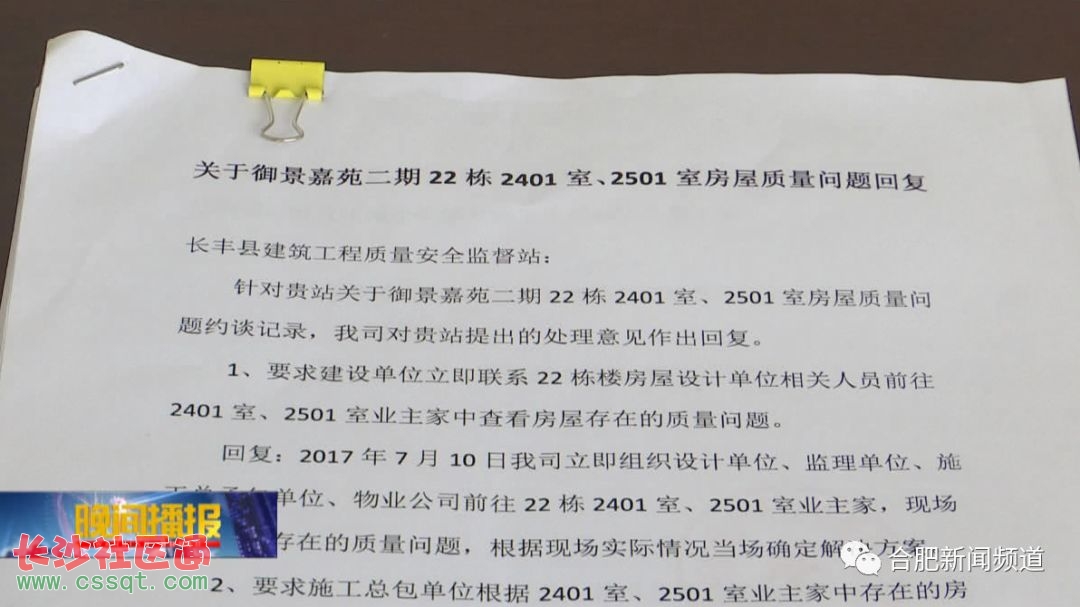 关于御景嘉苑二期 22 栋 2401 室、2501 室房屋质量问题回复
长丰县建筑工程质量安全监督站：
针对贵站关于御景嘉苑二期 22 栋 2401 室、2501 室房屋质量问
题约谈记录，我司对贵站提出的处理意见作出回复。
1、要求建设单位立即联系 22 栋楼房屋设计单位相关人员前往
2401 室、2501 室业主家中查看房屋存在的质量问题。
回复：2017 年 7 月 10 日我司立即组织设计单位、监理单位、施
单位、物业公司前往 22 栋 2401 室、2501 室业主家，现场
存在的质量问题，根据现场实际情况当场确定解决方案
2、要求施工总包单位根据 2401 室、2501 室业主家中存在的房
晚间播报
长沙社区通
www.cssqt.com
合肥新闻频道